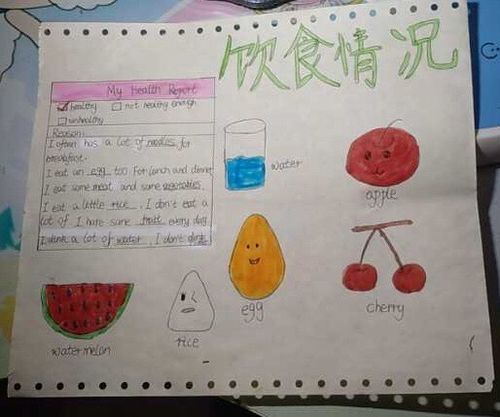 饮食情况
My Health Report
healthy not healthy enough
unhealthy
Reason:
I often has a lot of noodles for
breakfast.
I eat an egg too. For lunch and dinner
I eat some meat and some vegetables.
I eat a little rice. I don't eat a
lot of I have some fruit every day
I drink a lot of water. I don't
water
apple
egg
cherry
watermelon
rice